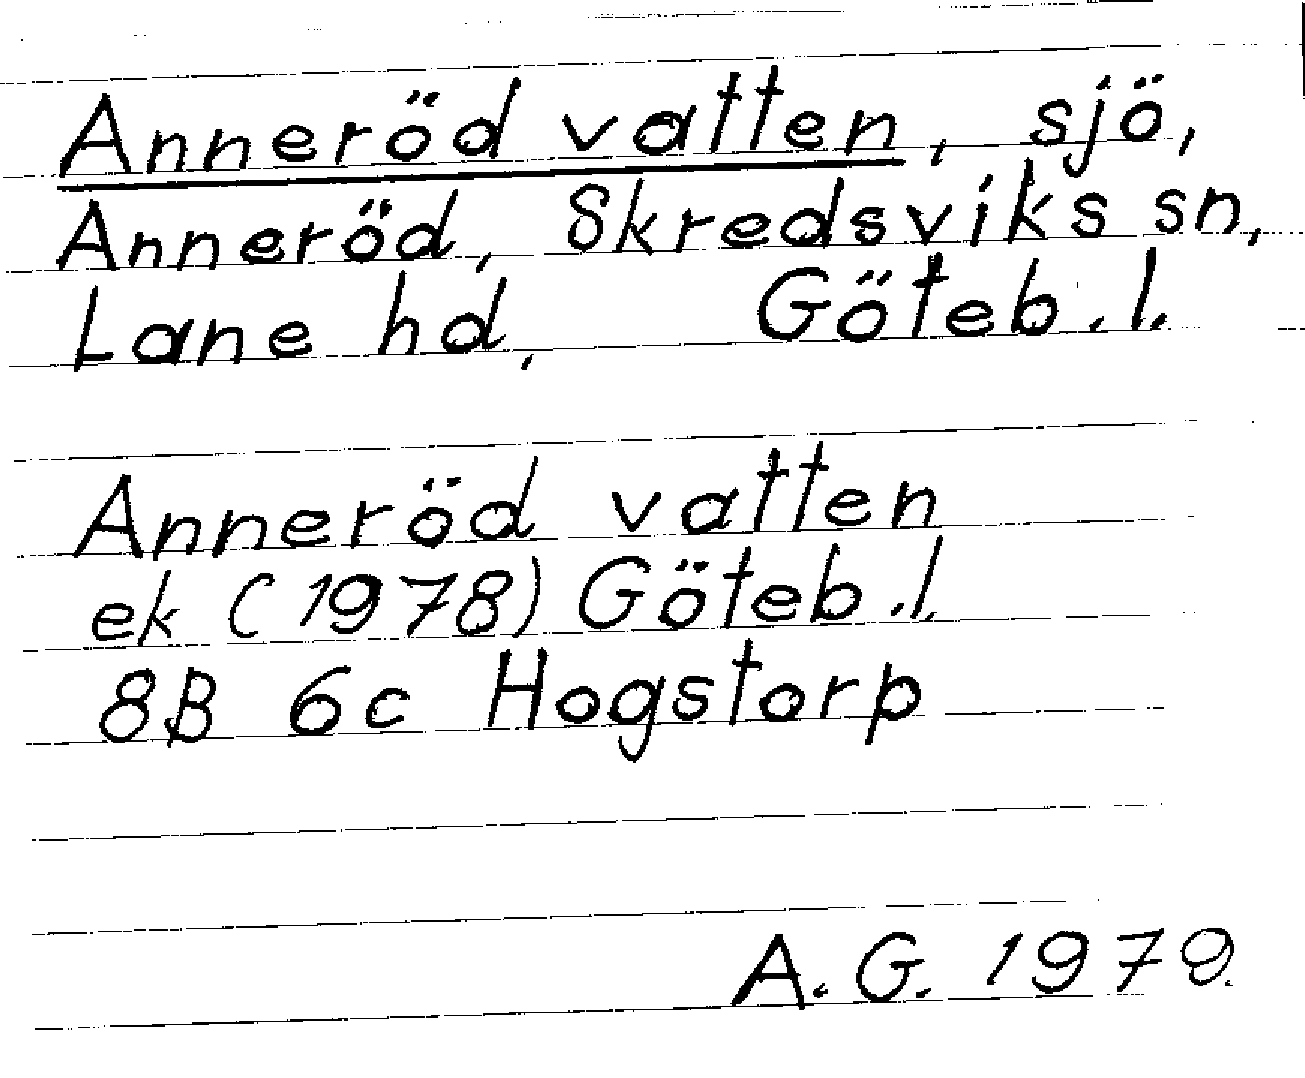 Anneröd vatten, sjö,
Anneröd, Skredsviks sn,
Lane hd, Göteb. l.
Anneröd vatten
ek (1978) Göteb. l.
8B 6c Hogstorp
A. G. 1979.